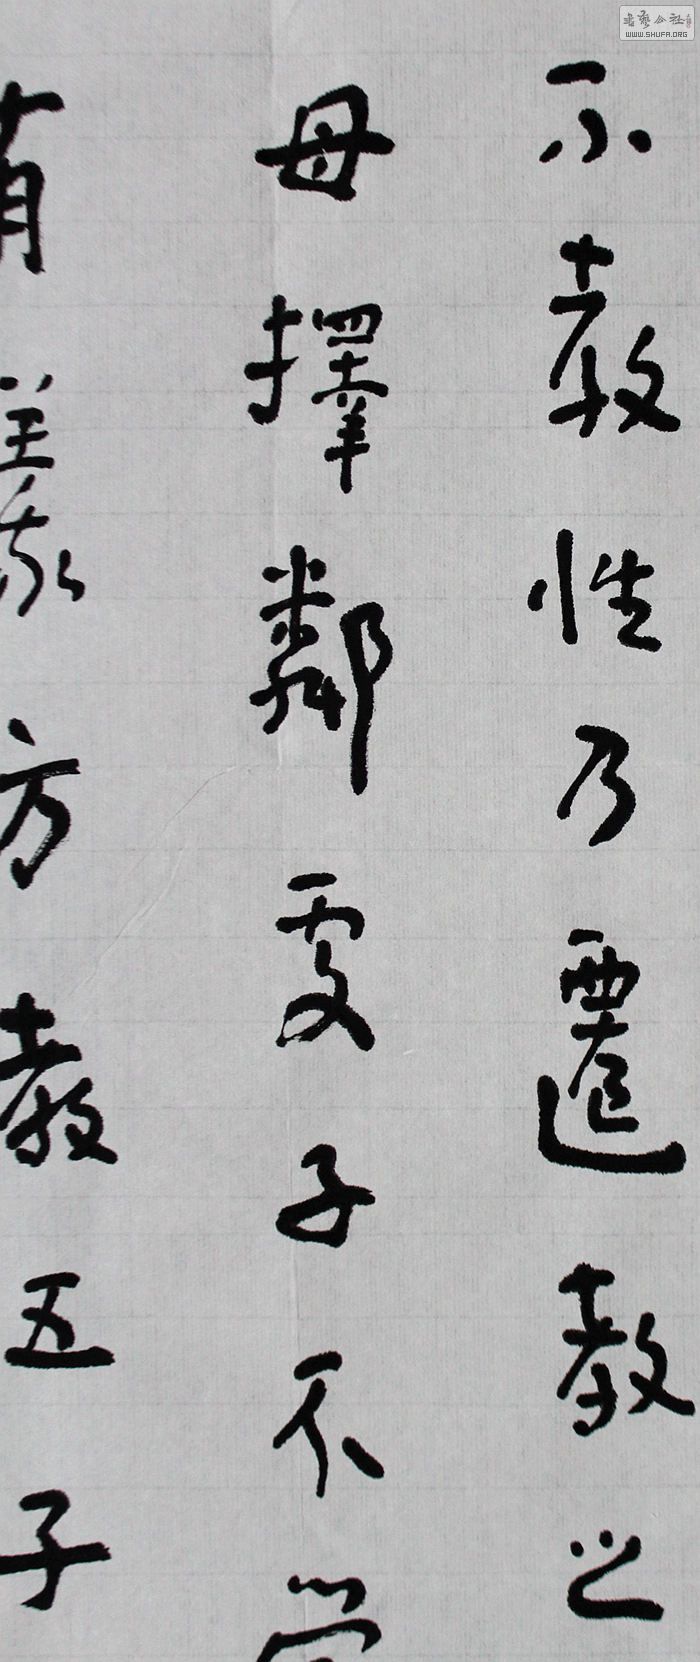 不教性乃遷教之
母擇鄰處子不学
有義方教五子
書藝公社
WWW.SHUFA.ORG